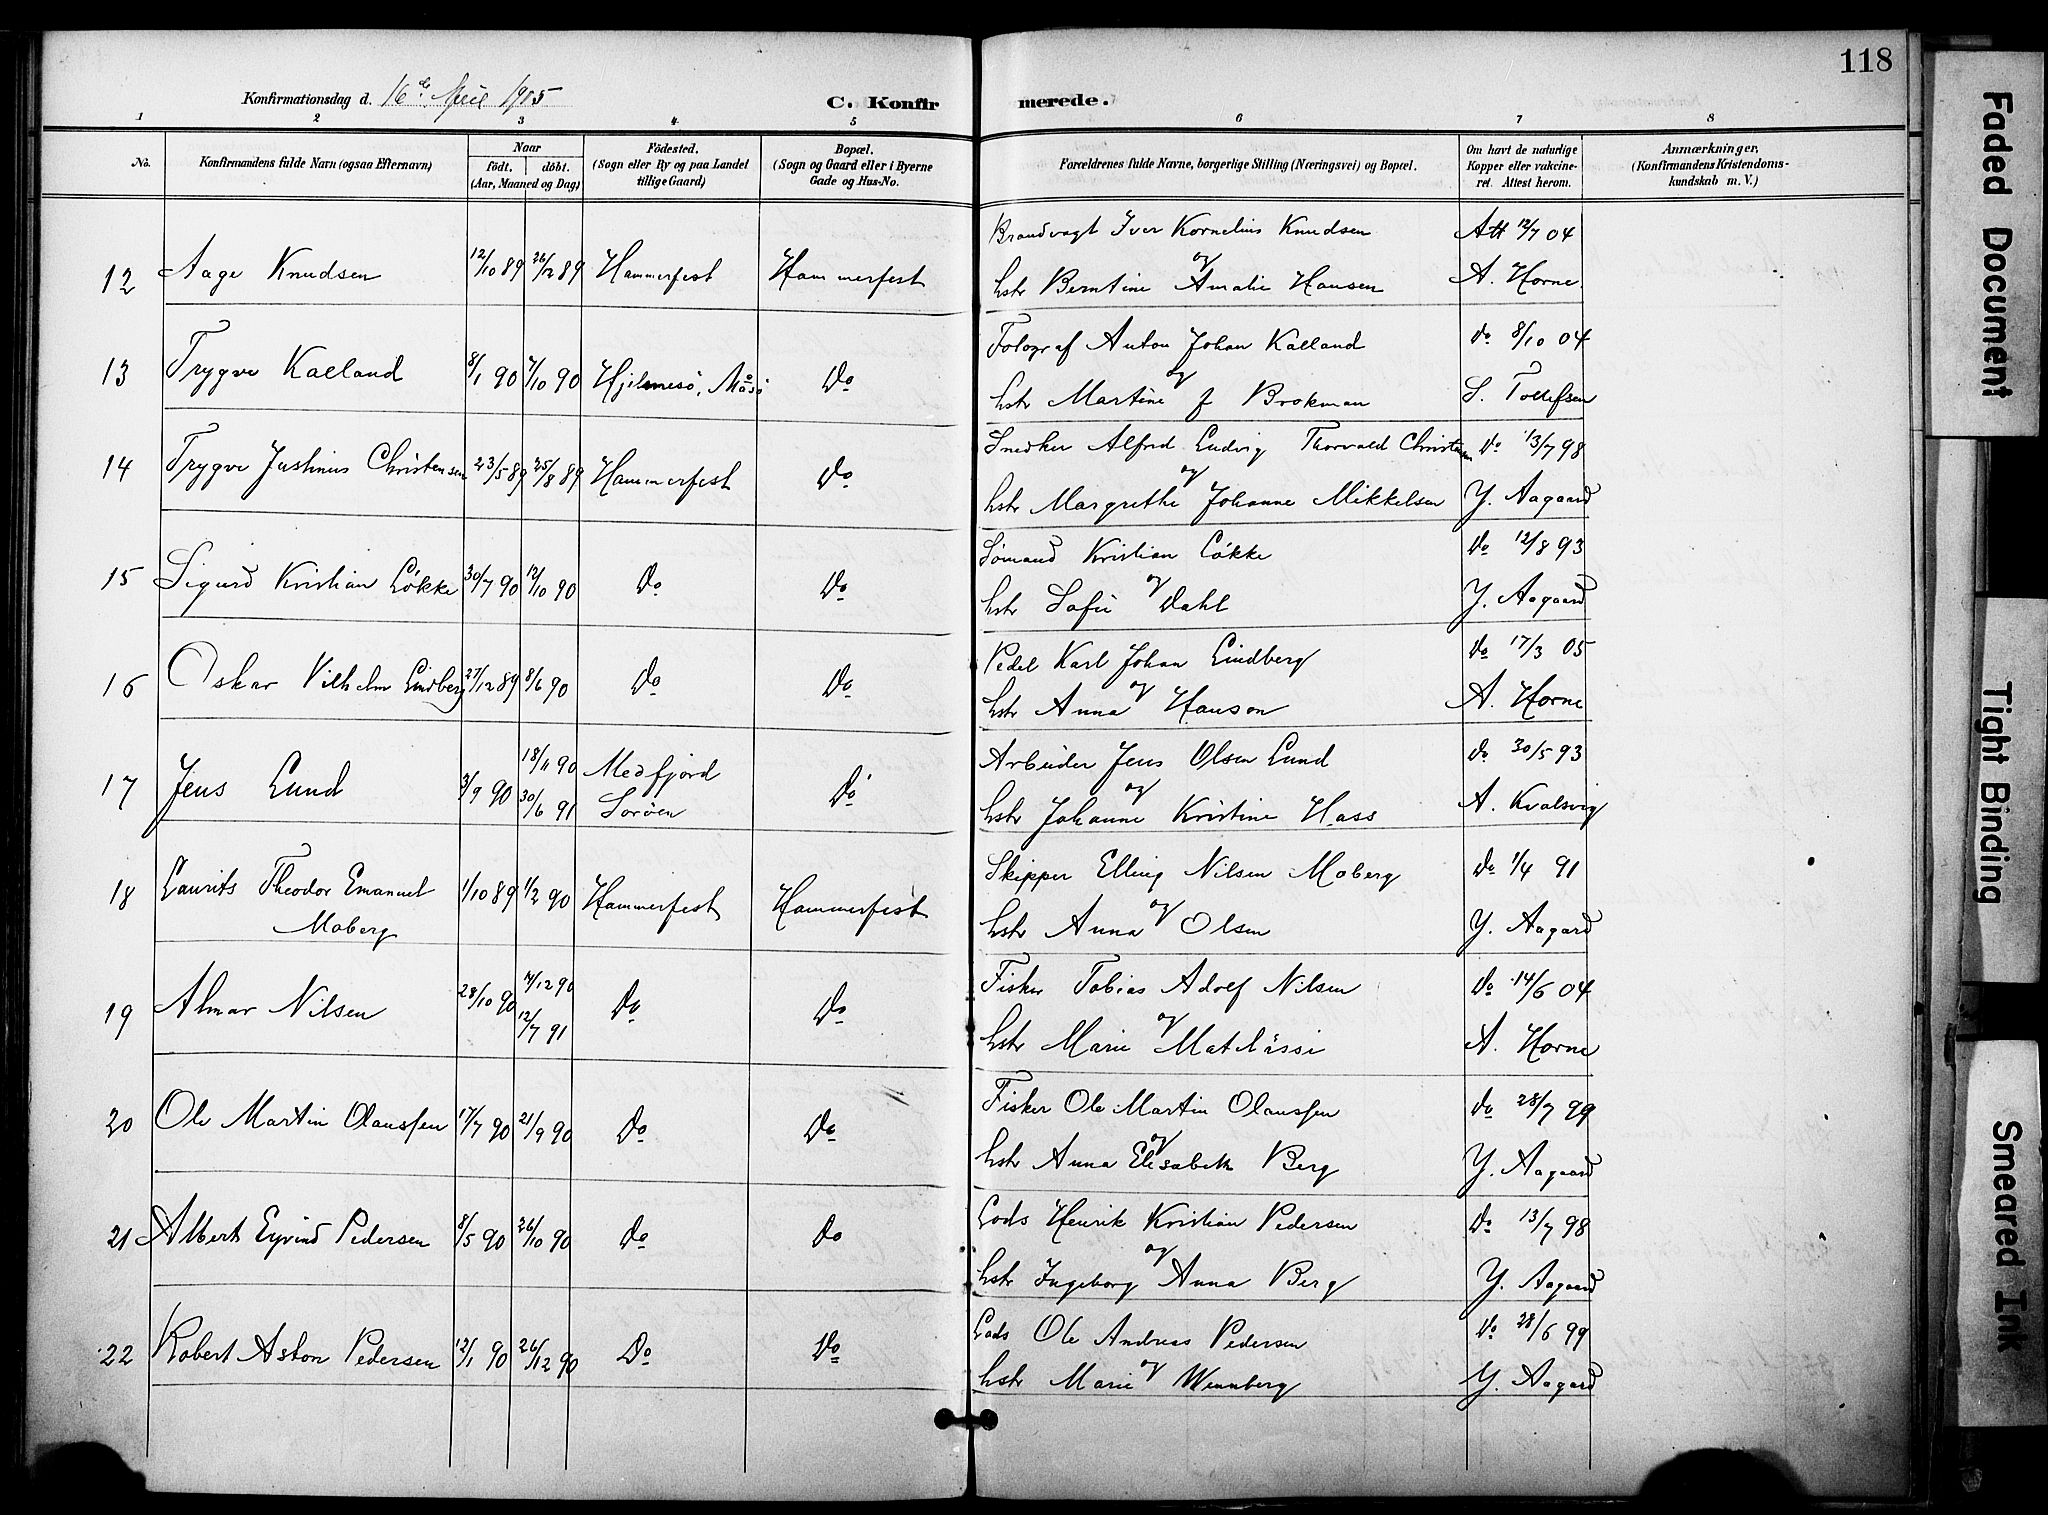 118
Konfirmationsdag d. 16de April 1905
C. Konfirmerede.
1 2 3 4 5 6 7 8
No.
Konfirmandens fulde Navn (ogsaa Efternavn)
Naar
født. døbt.
(Aar, Maaned og Dag)
Fødested.
(Sogn eller By og paa Landet
tillige Gaard)
Bopæl.
(Sogn og Gaard eller i Byerne
Gade og Hus-No.
Forældrenes fulde Navne, borgerlige Stilling (Næringsvei) og Bopæl.
Om havt de naturlige
Kopper eller vakcine-
ret. Attest herom.
Anmærkninger.
(Konfirmandens Kristendoms-
kundskab m. V.)
Brandvagt Iver Kornelius Knudsen Att 12/7 04
12 Aage Knudsen 12/10 89 26/12 89 Hammerfest Hammerfest
og
hstr Berntine Amalie Hansen A. Horne
13 Trygve Kaeland 8/1 90 7/10 90 Hjelmesö, Måsö Do
Fotograf Anton Johan Kaeland Do 8/10 04
og
hstr Martine f Brokman S. Tollefsen
14 Trygve Justinus Christensen 23/5 89 25/8 89 Hammerfest Do
Snedker Alfred Ludvig Thorvald Christensen Do 13/7 98
og
hstr Margrethe Johanne Mikkelsen Y. Aagaard
15 Sigurd Kristian Lökke 30/7 90 12/10 90 Do Do
Sömand Kristian Lökke Do 12/8 93
og
hstr Sofie Dahl Y. Aagaard
16 Oskar Vilhelm Lindberg 27/12 89 8/6 90 Do Do
Pedel Karl Johan Lindberg Do 17/3 05
og
hstr Anna Hanson A. Horne
17 Jens Lund 3/9 90 18/11 90 Medfjord Do
30/6 91 Soröen
Arbeider Jens Olsen Lund Do 30/5 93
og
hstr Johanne Kristine Hass A. Kvalsvig
18 Laurits Theodor Emanuel 1/10 89 1/2 90 Hammerfest Hammerfest
Moberg
Skipper Elling Nilsen Moberg Do 1/4 91
og
hstr Anna Olsen Y. Aagard
19 Almar Nilsen 28/10 90 12 90 Do Do
12/7 91
Fisker Tobias Adolf Nilsen Do 14/6 04
og
hstr Marie A. Horne
20 Ole Martin Olaussen 17/7 90 21/9 90 Do Do
Fisker Ole Martin Olaussen Do 28/7 99
og
hstr Anna Elisabeth Berg Y. Aagaard
21 Albert Eyvind Pedersen 8/5 90 26/10 90 Do Do
Lods Henrik Kristian Pedersen Do 13/7 98
og
hstr Ingeborg Anna Berg Y. Aagaard
22 Robert Aston Pedersen 12/1 90 26/12 90 Do Do
Lods Ole Andreas Pedersen Do 28/6 99
og
hstr Marie Wennberg Y. Aagard
Faded Document
Tight Binding
Smeared Ink